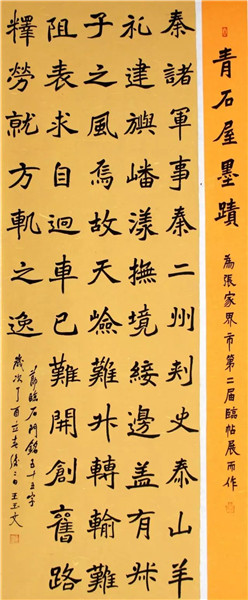 青石屋墨蹟
為張家界市第二届臨帖展而作
秦諸軍事秦二州刾史泰山羊
礼建旟嶓漾撫境綏邊盖有叔
子之風焉故天嶮難升轉輸難
阻表求自迴車已難開創舊路
釋勞就方軌之逸
節臨石門銘五十五字
歲次丁酉立春後二日王玉文